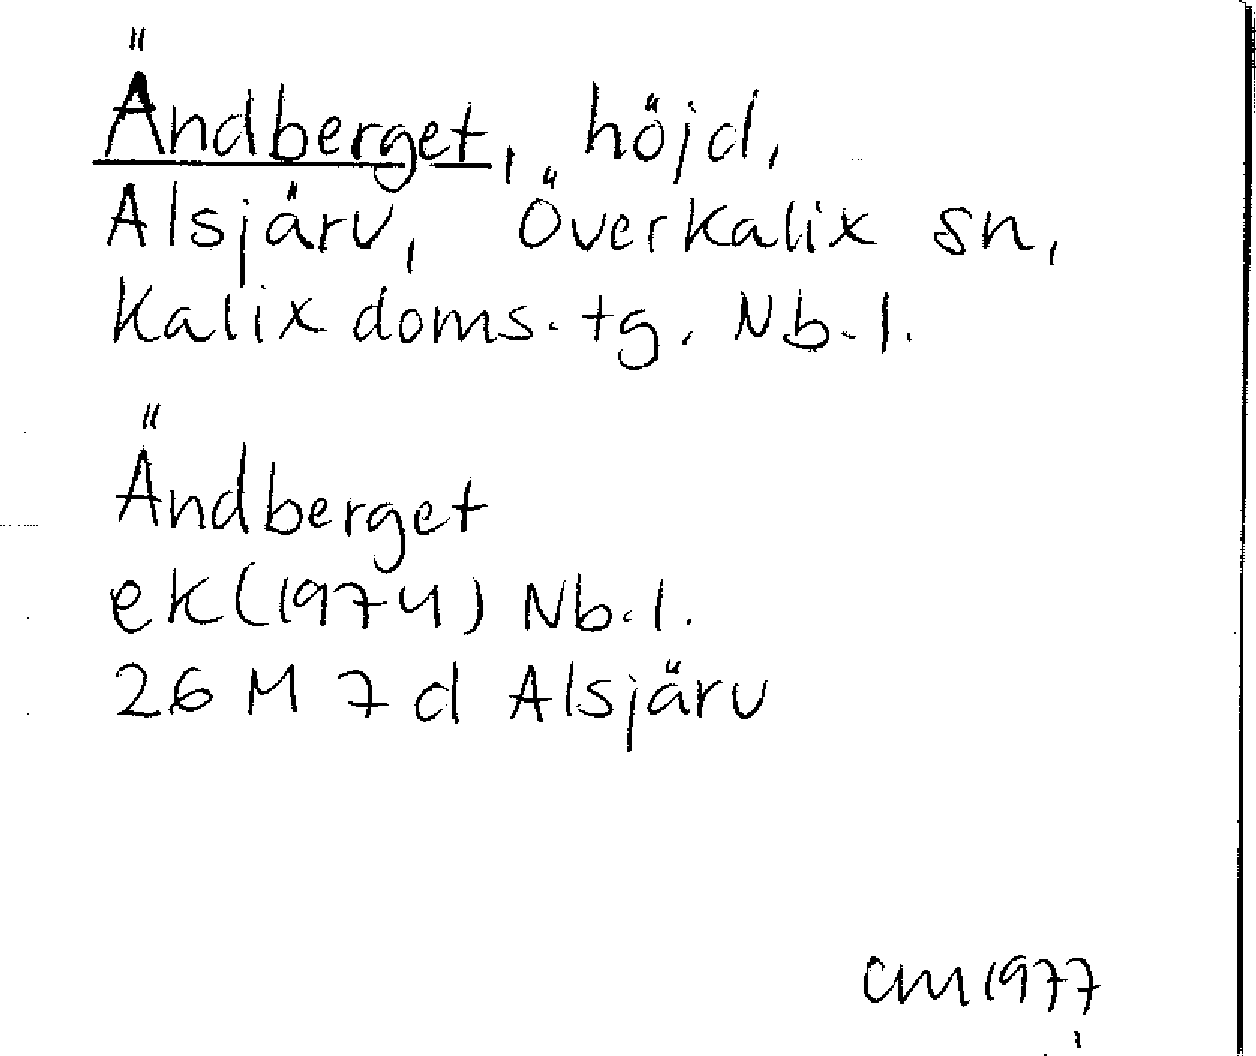 Ändberget, höjd,
Alsjärv, Överkalix sn,
Kalix doms. tg. Nb. l.
Ändberget
ek (1974) Nb. l.
26 M 7 d Alsjärv
CM 1977